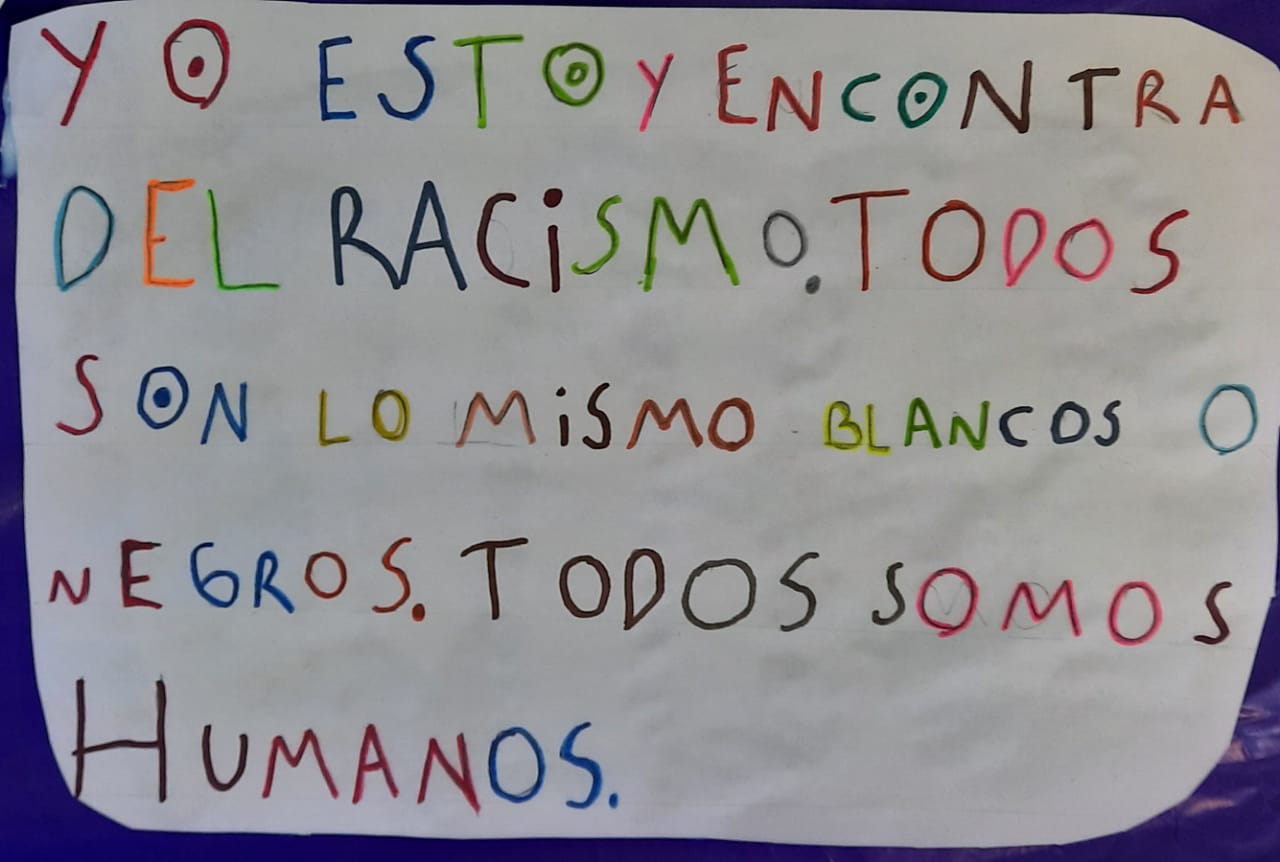 YO ESTOY ENCONTRA
DEL RACiSMO. TODOS
SON LO MiSMO BLANCOS O
NEGROS. TODOS SOMOS
HUMANOS.